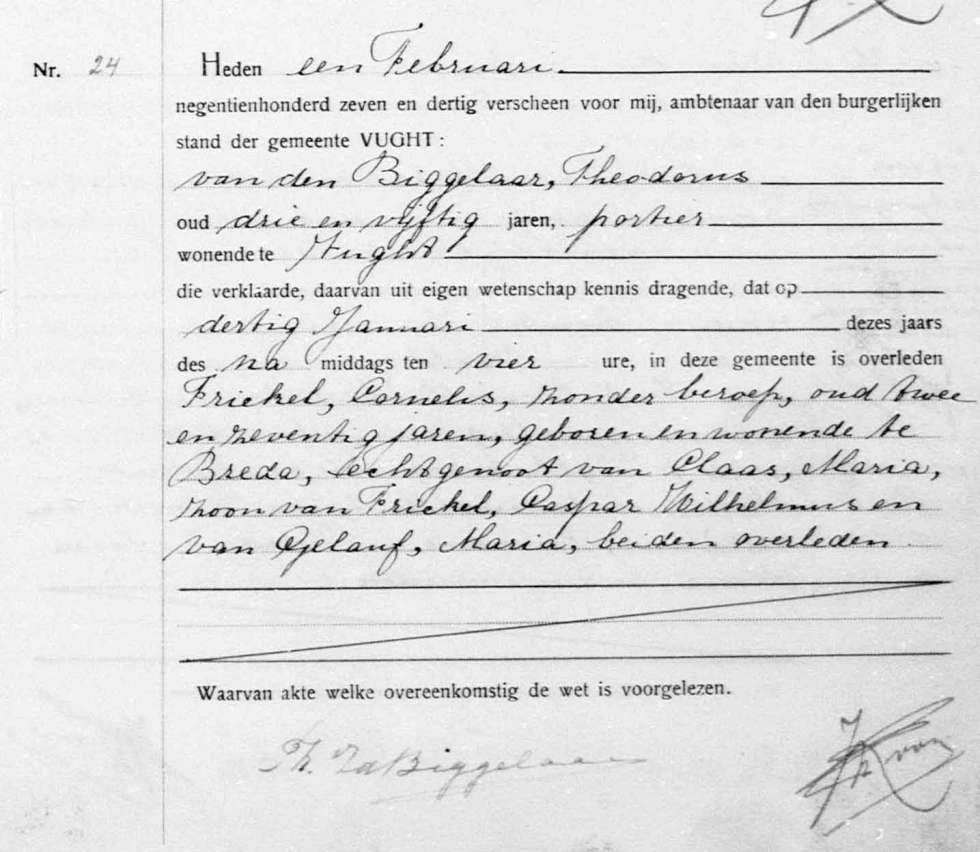 Nr. 24 Heden een Februari
negentienhonderd zeven en dertig verscheen voor mij, ambtenaar van den burgerlijken
stand der gemeente VUGHT:
van den Biggelaar, Theodorus
oud drie en vijftig jaren, portier
wonende te Vught
die verklaarde, daarvan uit eigen wetenschap kennis dragende, dat op
dertig Januari dezes jaars
des na middags ten vier ure, in deze gemeente is overleden
Frickel, Cornelis, zonder beroep, oud twee
en zeventig jaren, geboren en wonende te
Breda, echtgenoot van Claas, Maria,
zoon van Frickel, Caspar Wilhelmus en
van Gelauf, Maria, beiden overleden
Waarvan akte welke overeenkomstig de wet is voorgelezen.
Th. vd Biggelaar